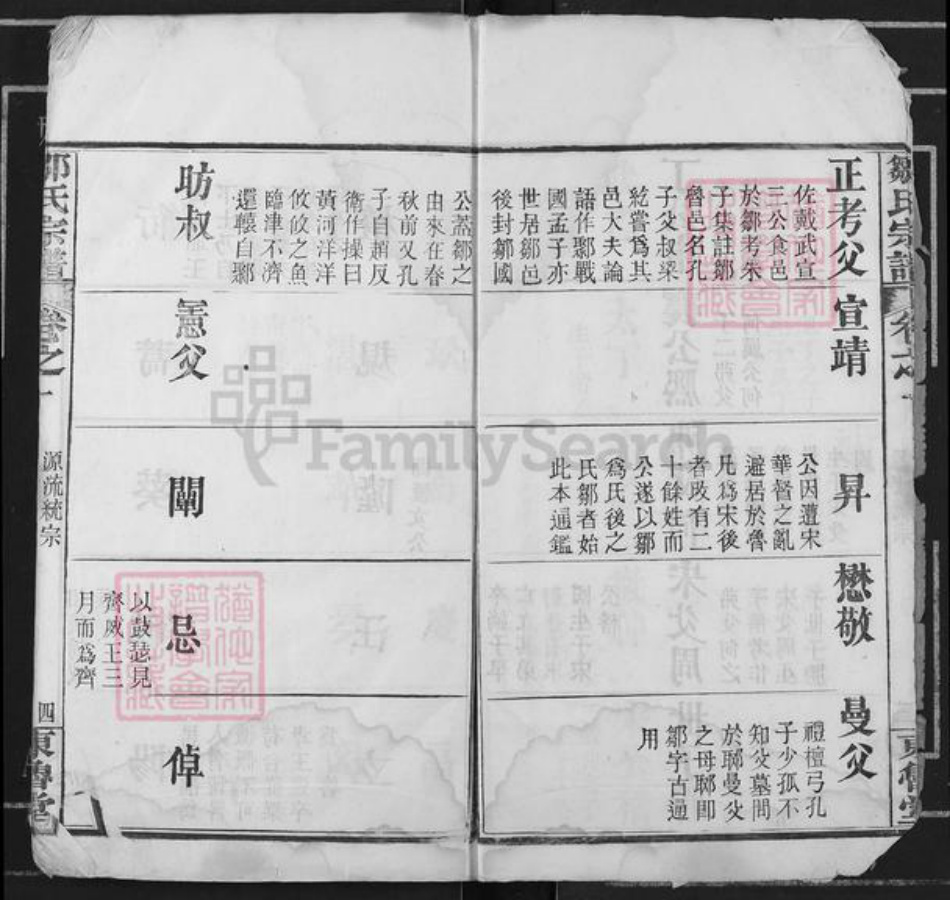 鄒氏宗譜
卷之一
正考父
佐戴武宣
三公食邑
於鄒考朱
子集註鄒
魯邑名孔
子父叔梁
紇嘗爲其
邑大夫論
語作鄹戰
國孟子亦
世居鄒邑
後封鄒國
宣靖
昇
公因遭宋
華督之亂
避居於魯
凡爲宋後
者攺有二
十餘姓而
公遂以鄒
爲氏後之
氏鄒者始
此本通鑑
懋敬
曼父
禮檀弓孔
子少孤不
知父墓問
於聊曼父
之母聊卽
鄒字古通
用
昉叔
公蓋鄒之
由來在春
秋前又孔
子自趙反
衛作操曰
黃河洋洋
攸攸之魚
臨津不濟
還轅自鄹
罴父
闡
忌
以鼓瑟見
齊威王三
月而爲齊
倬
鄒氏宗譜
卷之一
源流統宗
四
東魯堂
FamilySearch